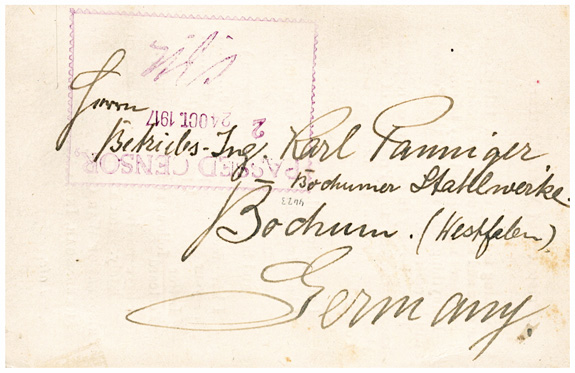 Herrn
Betriebs-Ing. Karl Panniger
Bochumer Stahlwerke.
Bochum. (Westfalen)
Germany.
PASSED CENSOR
2
24 OCT. 1917